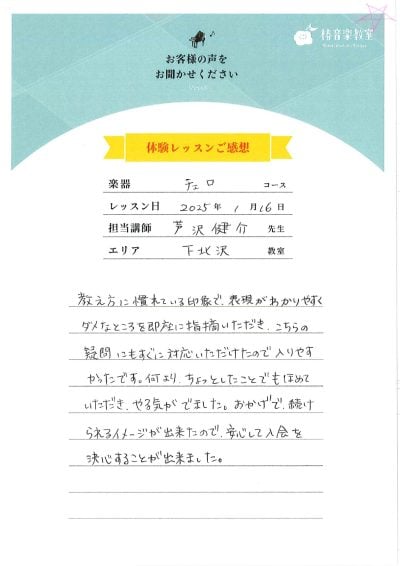 お客様の声を
お聞かせください
椿音楽教室
体験レッスンご感想
楽器 チェロ コース
レッスン日 2025年 1月16日
担当講師 芦沢健介 先生
エリア 下北沢 教室
教え方に慣れている印象で、表現がわかりやすく
ダメなところを即座に指摘いただき、こちらの
疑問にもすぐに対応いただけたので入りやす
かったです。何より、ちょっとしたことでもほめて
いただき、やる気がでました。おかげで、続け
られるイメージが出来たので、安心して入会を
決心することが出来ました。